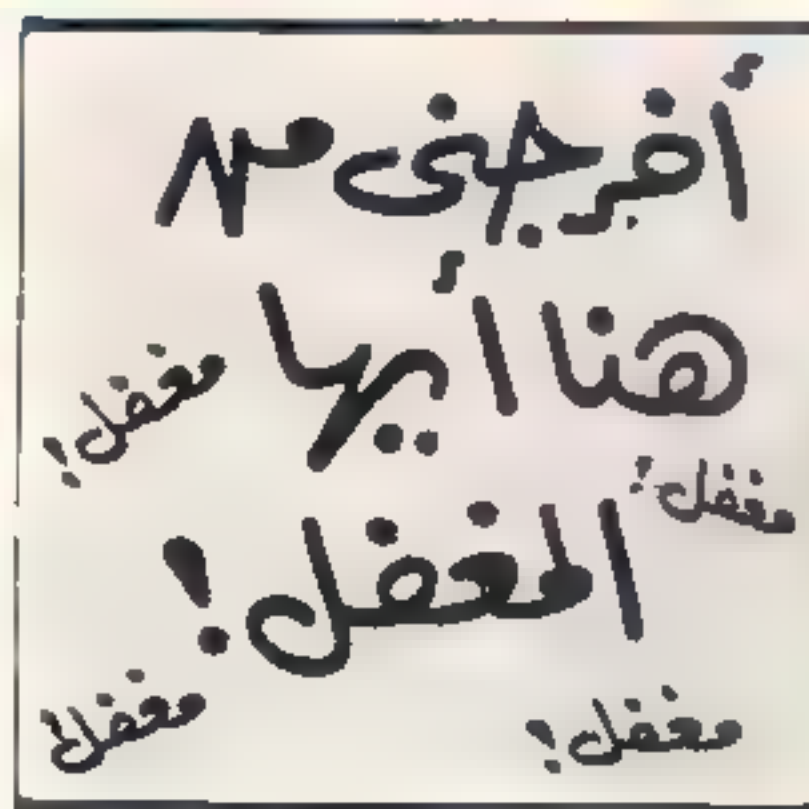 أفرجنى من
هنا أيها
مغفل!
مغفل!
المغفل!
مغفل!
مغفل!